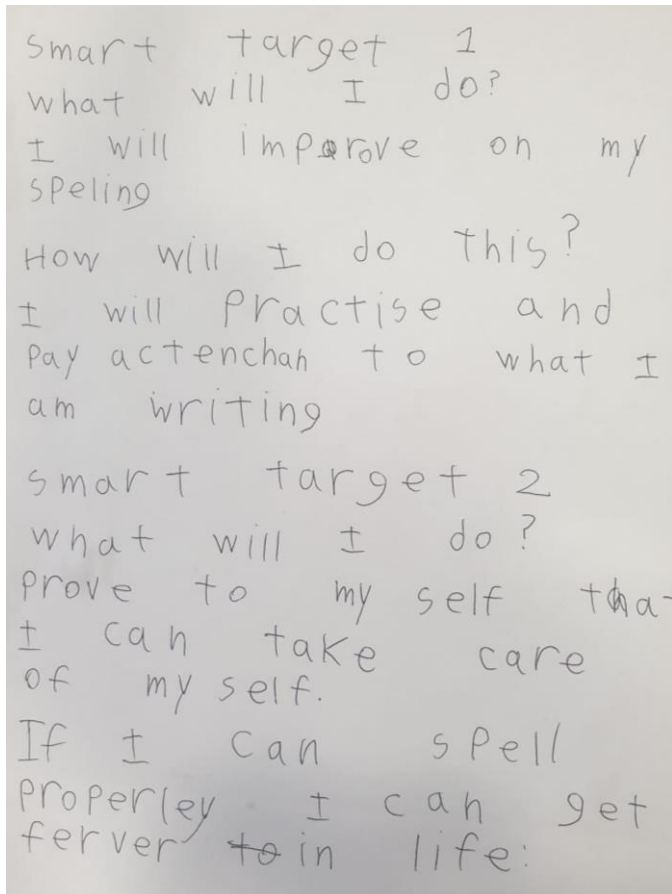 smart target 1
what will I do?
I will improve on my
speling
How will I do this?
I will practise and
pay actenchan to what I
am writing
smart target 2
what will I do?
prove to my self that
I can take care
of my self.
If I can spell
properley I can get
ferver to in life: